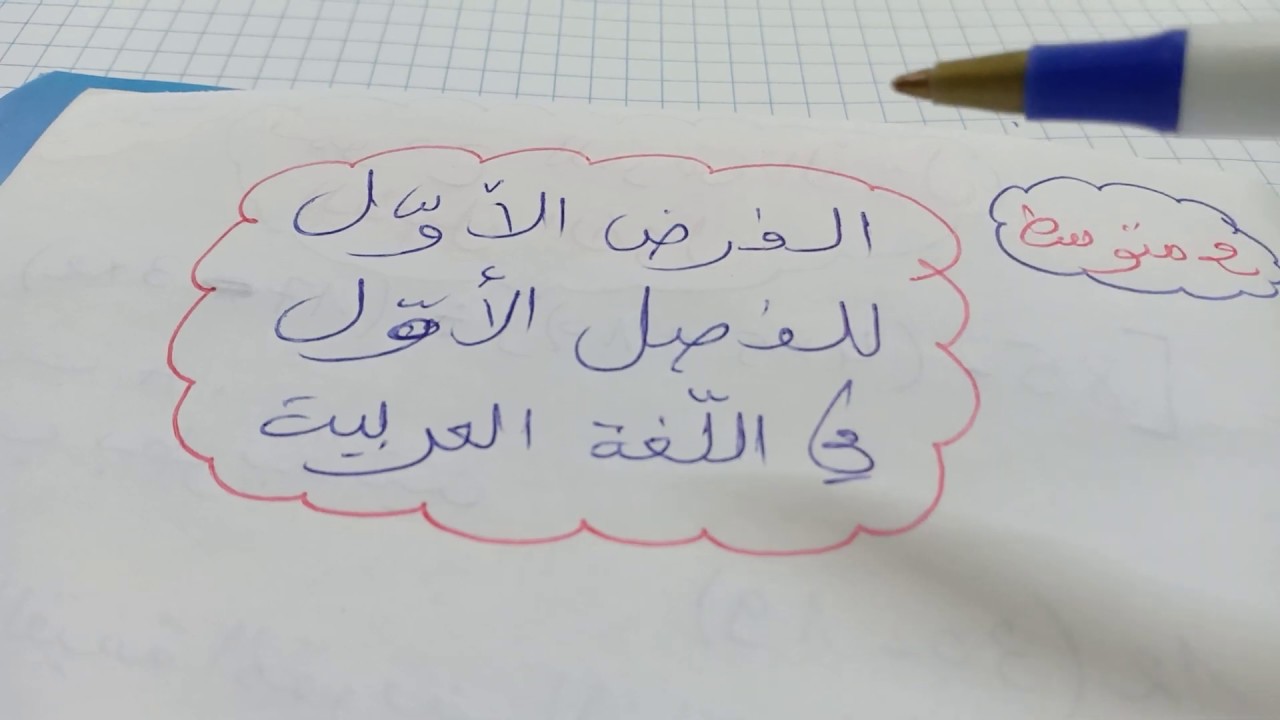 الفرض الأوّل
للفصل الأوّل
في اللّغة العربية
متوسط